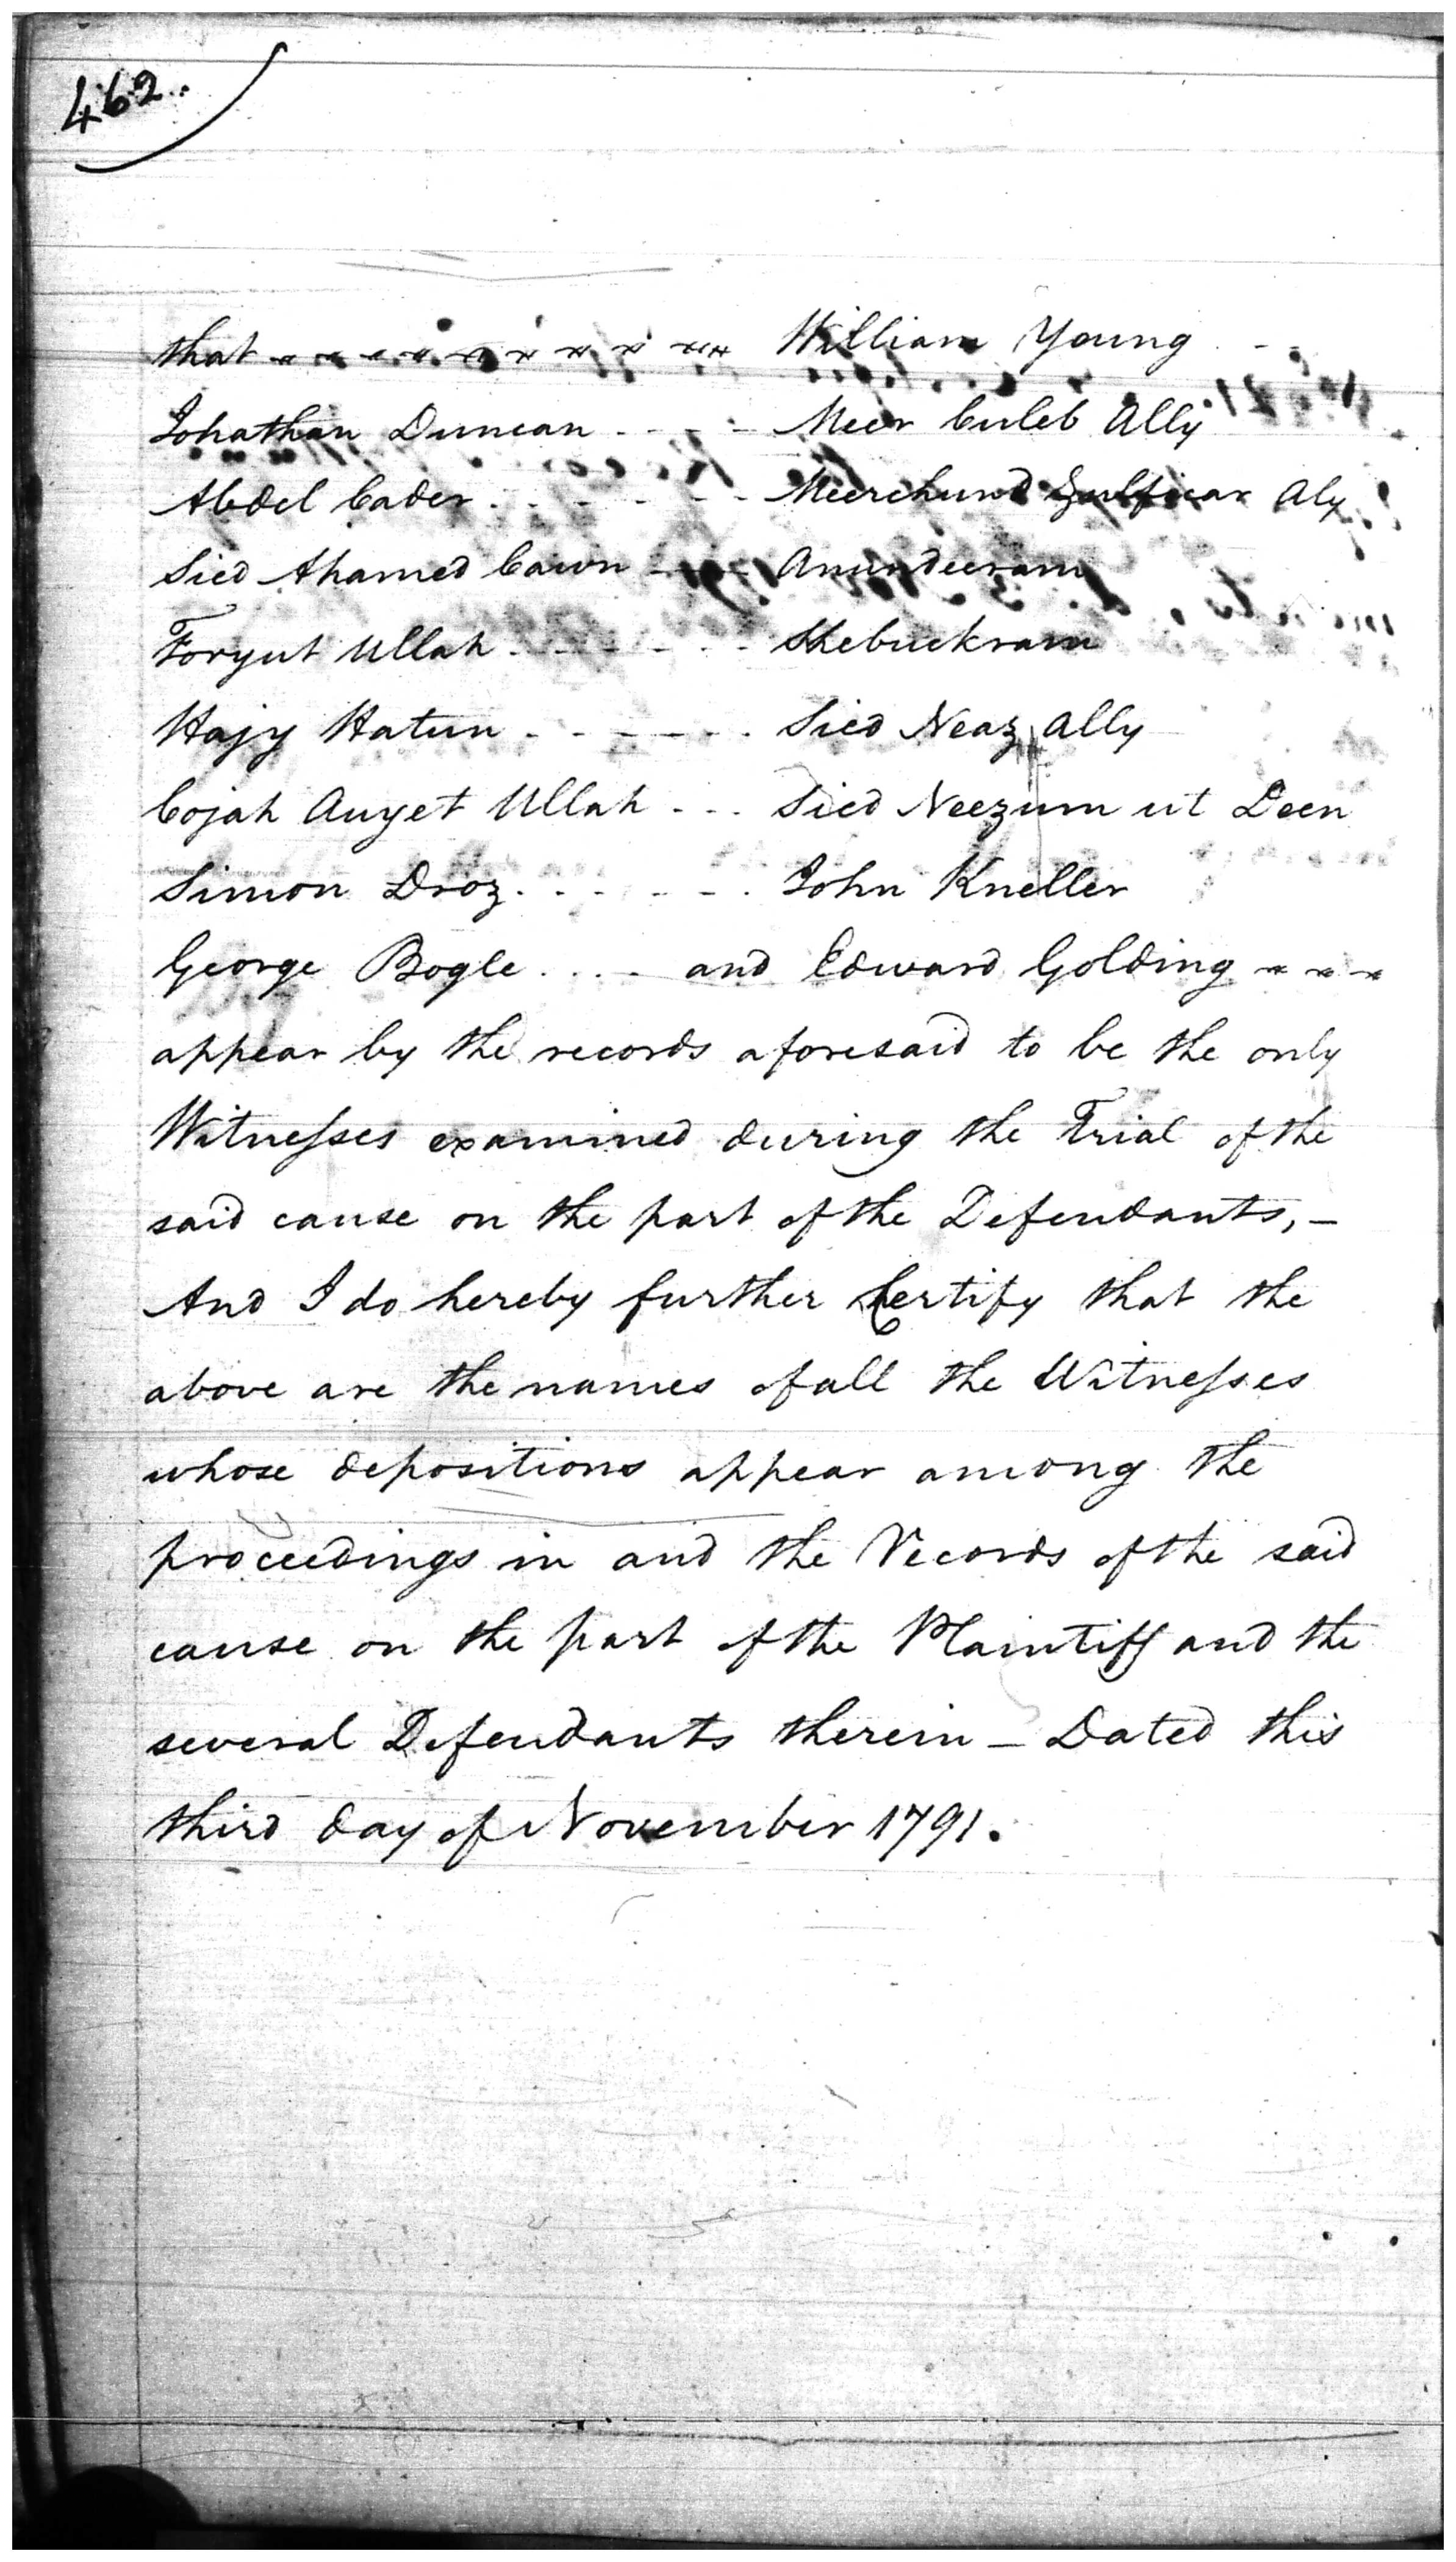 462.
that - - - - - - - - - William Young - -
Johathan Duncan - - - - Meer Culeb Ally
Abdel Cader - - - - - - Meerchund Zulficar Aly
Sied Ahamed Cawn - - - Anundeeram
Foryut Ullah - - - - - - Shebuckram
Hajy Hatun - - - - - - Sied Neaz Ally
Cojah Auyet Ullah - - - Sied Neezum ut Deen
Simon Droz - - - - - - John Kneller
George Bogle - - - - and Edward Golding - - -
appear by the records aforesaid to be the only
Witnesses examined during the Trial of the
said cause on the part of the Defendants, -
And I do hereby further Certify that the
above are the names of all the Witnesses
whose depositions appear among the
proceedings in and the Records of the said
cause on the part of the Plaintiff and the
several Defendants therein - Dated this
third day of November 1791.